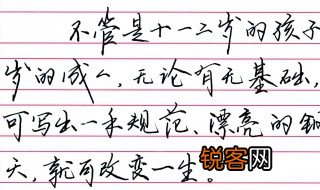 不管是十一二岁的孩子
岁的成人,无论有无基础,
可写出一手规范、漂亮的钢
天,就可改变一生。
锐客网